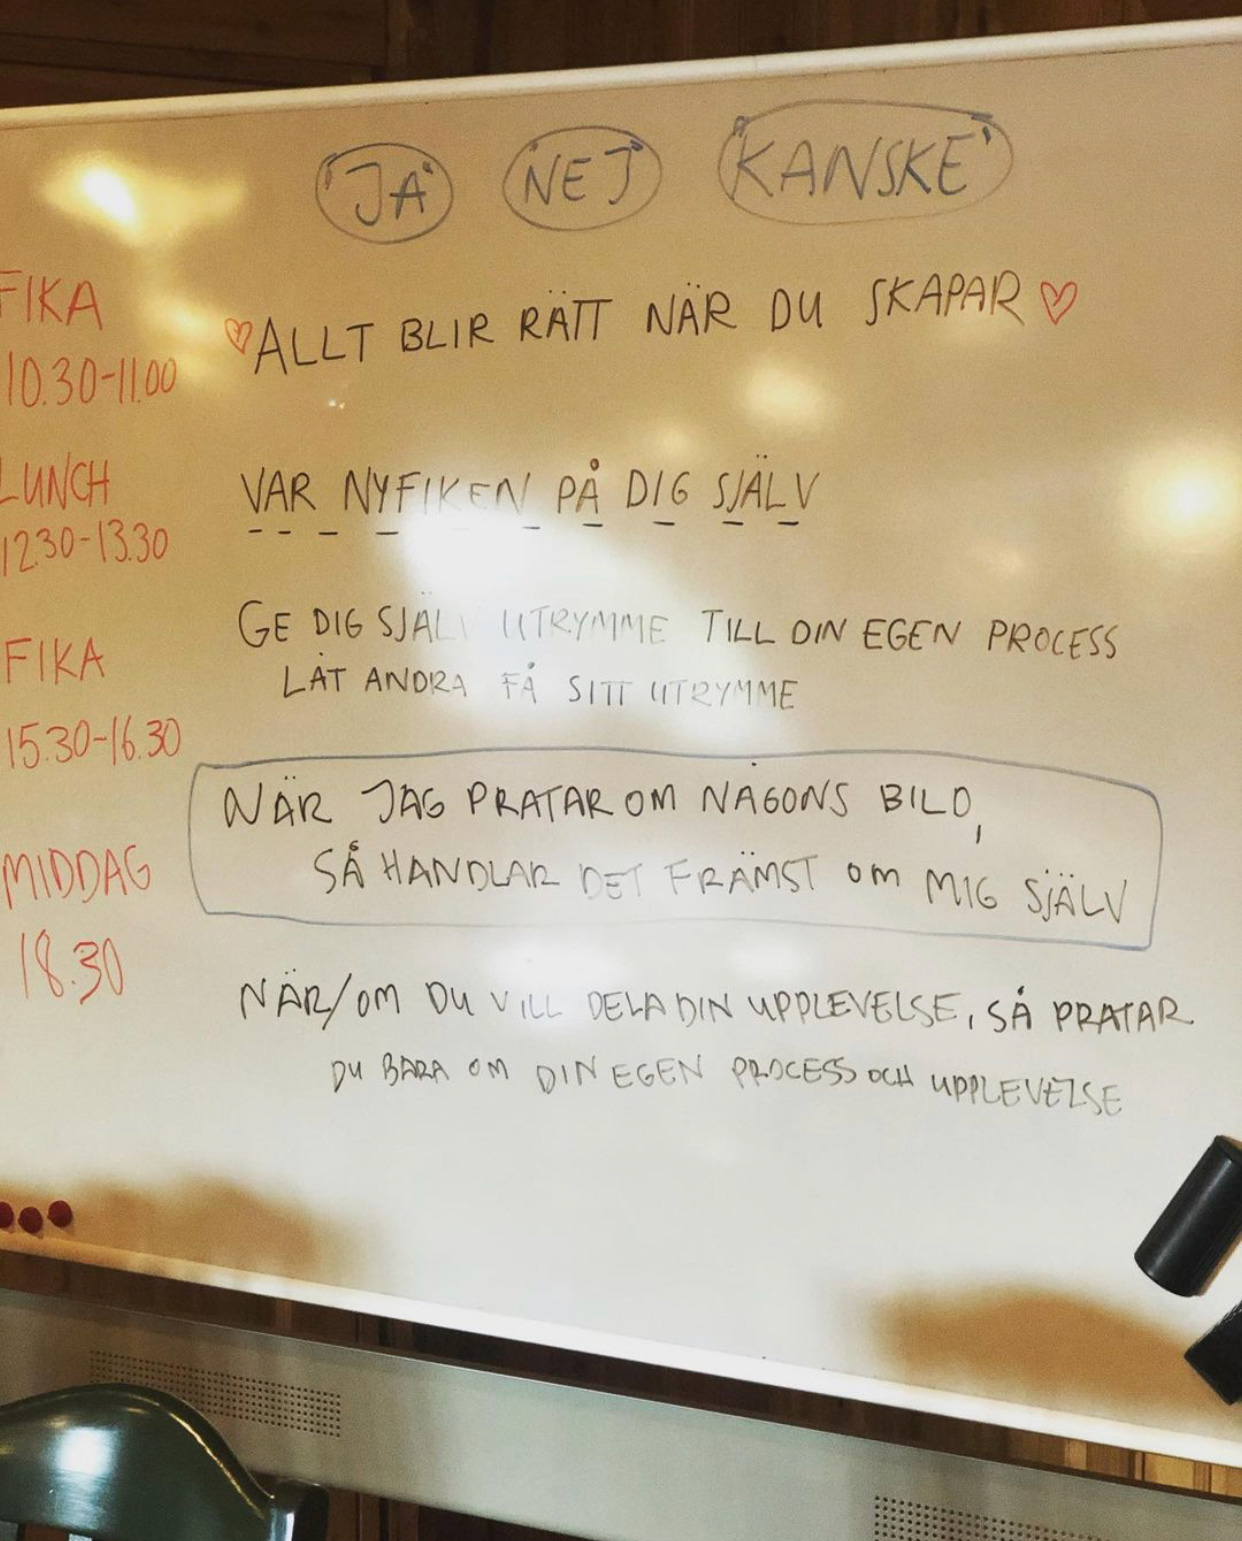 "JA" "NEJ" "KANSKE"
FIKA
10.30-11.00
LUNCH
12.30-13.30
FIKA
15.30-16.30
MIDDAG
18.30
♡ALLT BLIR RÄTT NÄR DU SKAPAR♡
VAR NYFIKEN PÅ DIG SJÄLV
GE DIG SJÄLV UTRYMME TILL DIN EGEN PROCESS
LÅT ANDRA FÅ SITT UTRYMME
NÄR JAG PRATAR OM NÅGONS BILD,
SÅ HANDLAR DET FRÄMST OM MIG SJÄLV
NÄR/OM DU VILL DELA DIN UPPLEVELSE, SÅ PRATAR
DU BARA OM DIN EGEN PROCESS OCH UPPLEVELSE